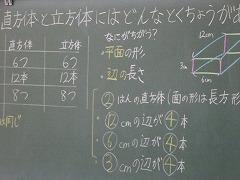 直方体と立方体にはどんなとくちょうが
直方体 立方体
6つ 6つ
12本 12本
8つ 8つ
は同じ
なにがちがう?
・平面の形
・辺の長さ
12cm
3cm
6cm
② はんの直方体(面の形は長方形
⑫cmの辺が④本
⑥cmの辺が④本
③cmの辺が④本